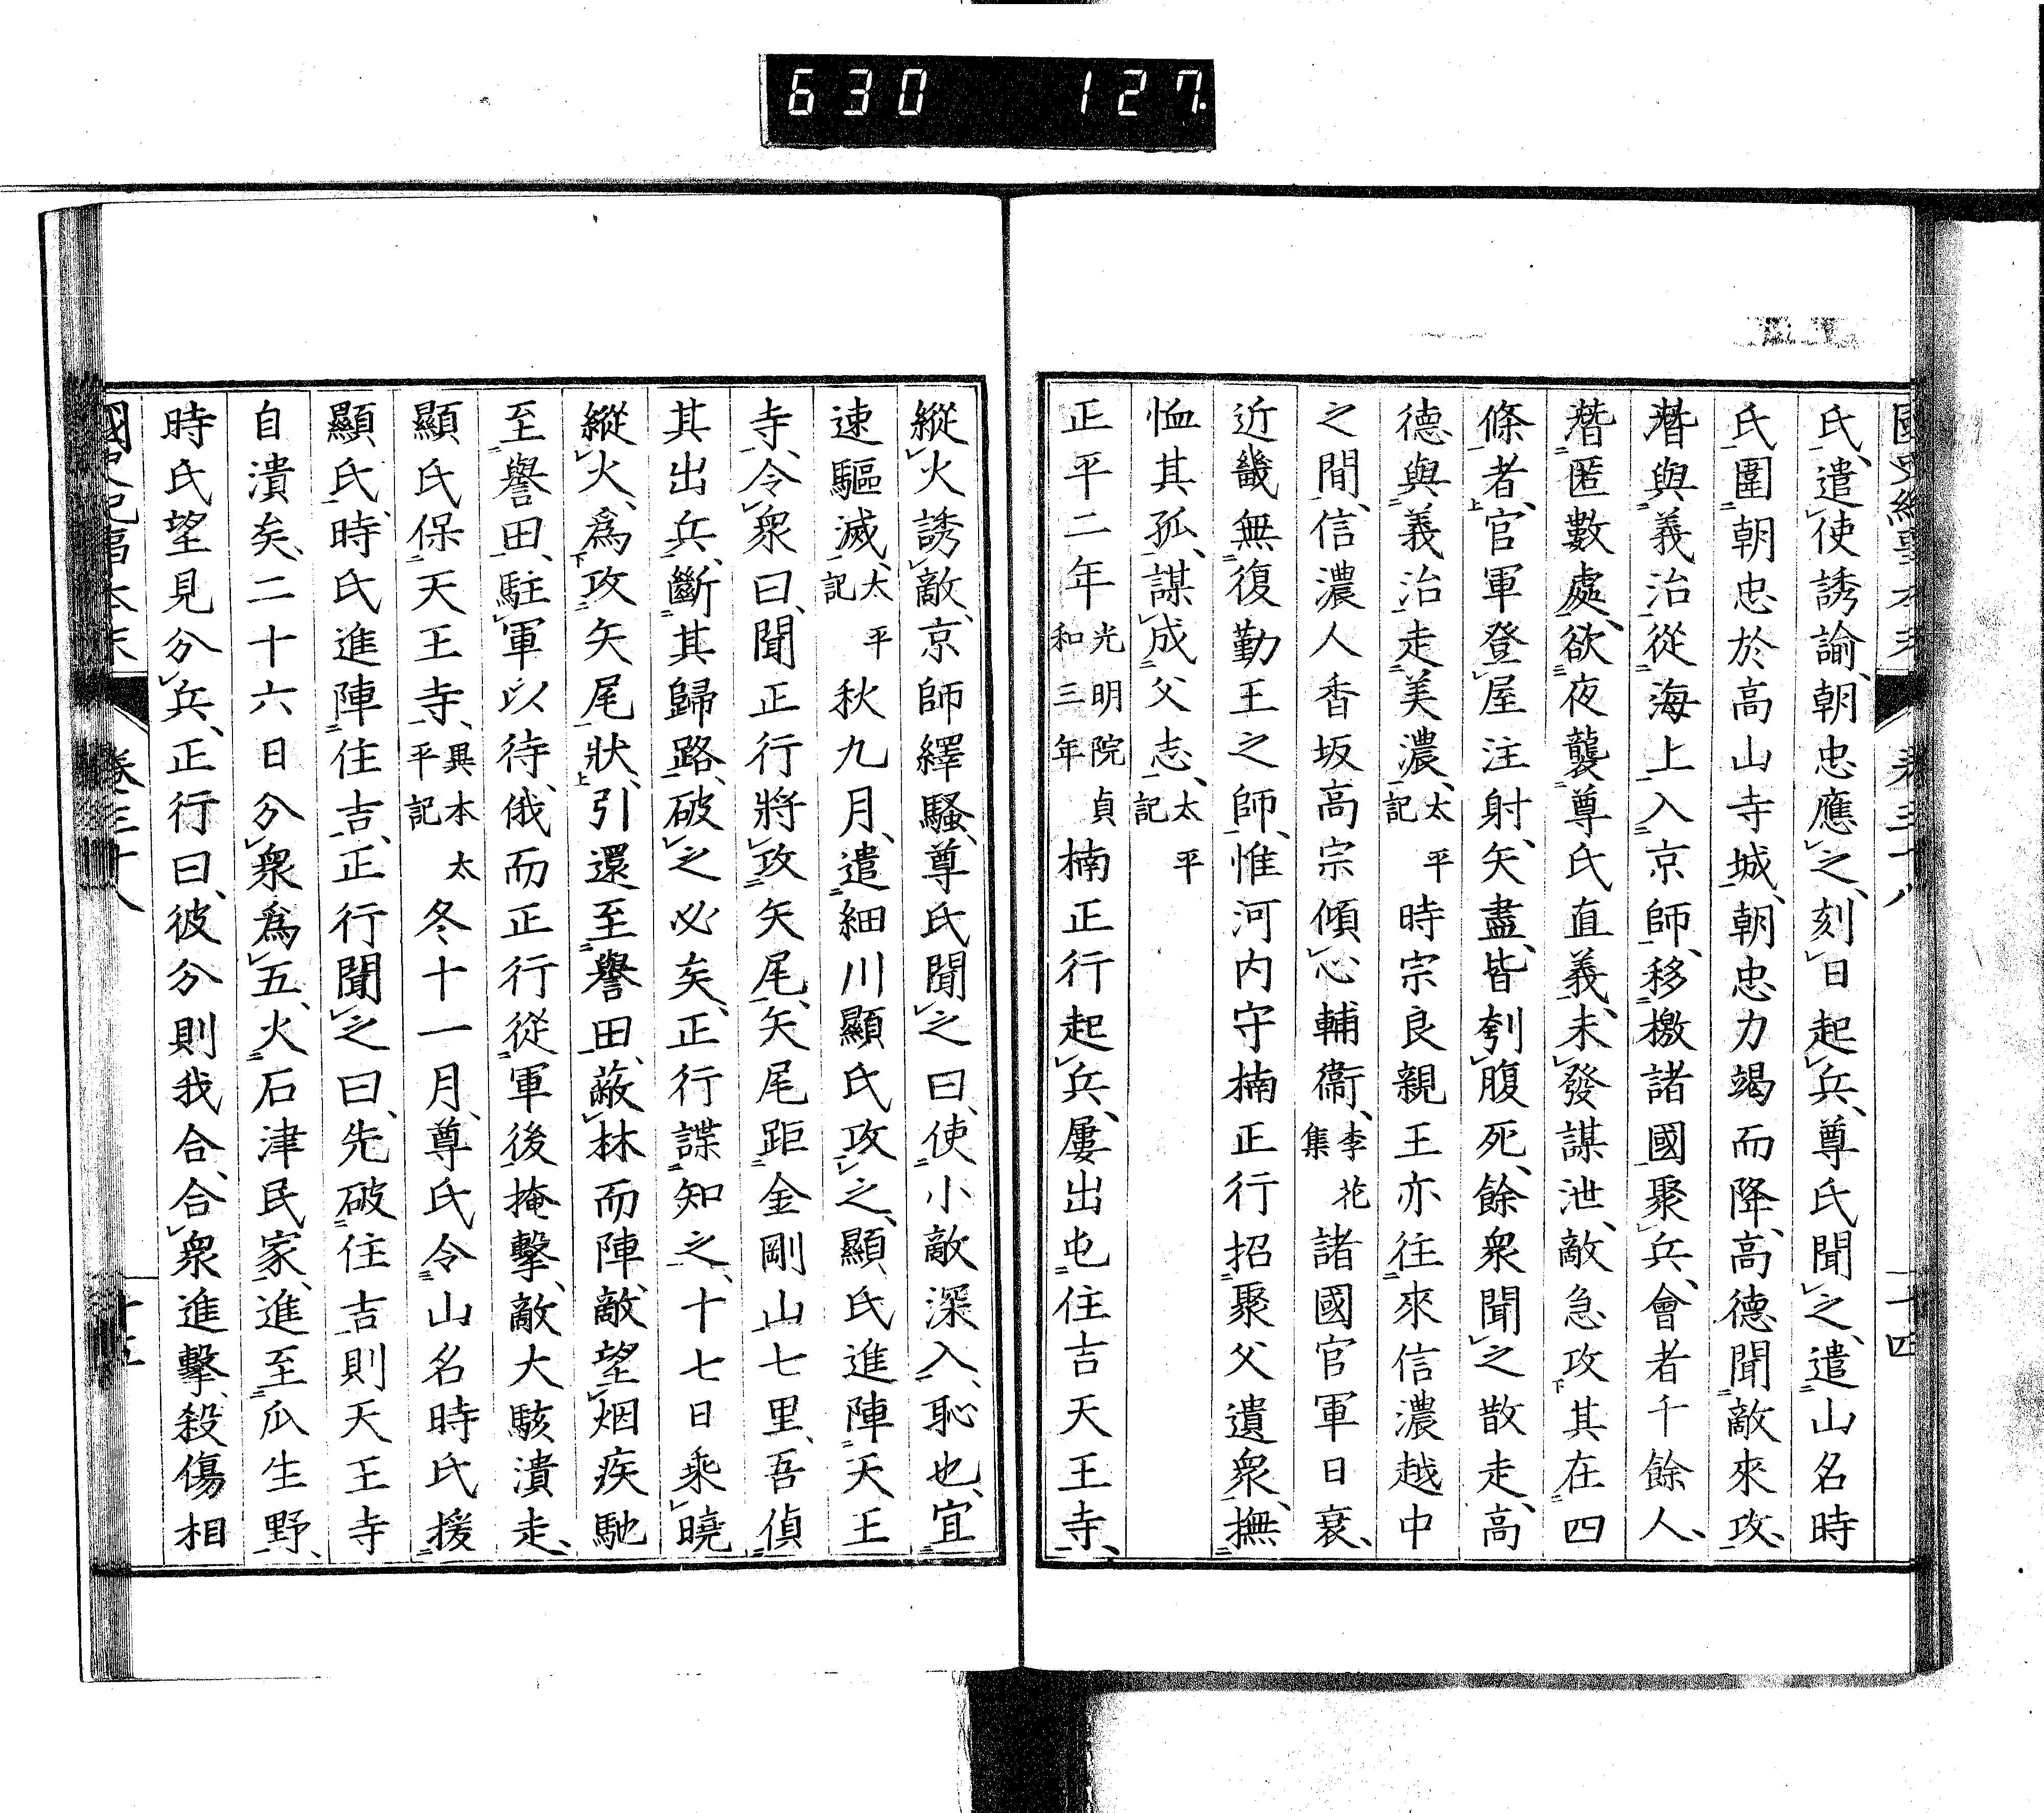 630 127.
國史紀事本末 卷三十八 二十四
氏、遣使誘諭、朝忠應之、刻日起兵、尊氏聞之、遣山名時
氏圍朝忠於高山寺城、朝忠力竭而降、高德聞敵來攻、
潛與義治從海上入京師、移檄諸國聚兵、會者千餘人、
潛匿數處、欲夜襲尊氏直義、未發謀泄、敵急攻其在四
條者、官軍登屋注射、矢盡、皆刳腹死、餘衆聞之散走、高
德與義治走美濃、太平記時宗良親王亦往來信濃越中
之間、信濃人香坂高宗傾心輔衞、李花集諸國官軍日衰、
近畿無復勤王之師、惟河内守楠正行招聚父遺衆、撫
恤其孤、謀成父志、太平記
正平二年光明院貞和三年楠正行起兵、屢出屯住吉天王寺、
縱火誘敵、京師繹騷、尊氏聞之曰、使小敵深入、恥也、宜
速驅滅、太平記秋九月、遣細川顯氏攻之、顯氏進陣天王
寺、令衆曰、聞正行將攻矢尾、矢尾距金剛山七里、吾偵
其出兵、斷其歸路、破之必矣、正行諜知之、十七日乘曉
縱火、爲攻矢尾狀、引還至譽田、蔽林而陣、敵望烟疾馳
至譽田、駐軍以待、俄而正行從軍後掩擊、敵大駭潰走、
顯氏保天王寺、異本太平記冬十一月、尊氏令山名時氏援
顯氏、時氏進陣住吉、正行聞之曰、先破住吉則天王寺
自潰矣、二十六日分衆爲五、火石津民家、進至瓜生野、
時氏望見分兵、正行曰、彼分則我合、合衆進擊、殺傷相
國史紀事本末 卷三十八 二十五